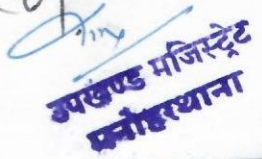 उपखण्ड मजिस्ट्रेट
मनोहरथाना